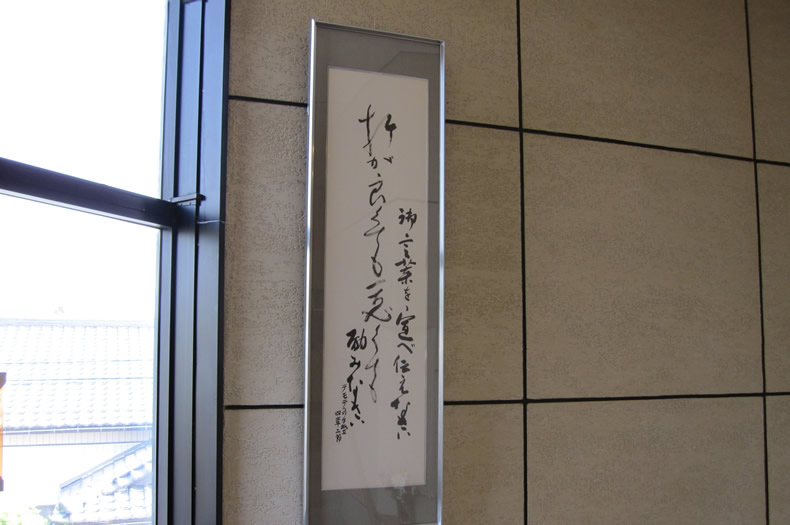 御言葉を宣べ伝えなさい
折が良くても悪くても
励みなさい
テモテへの手紙二
四章二節